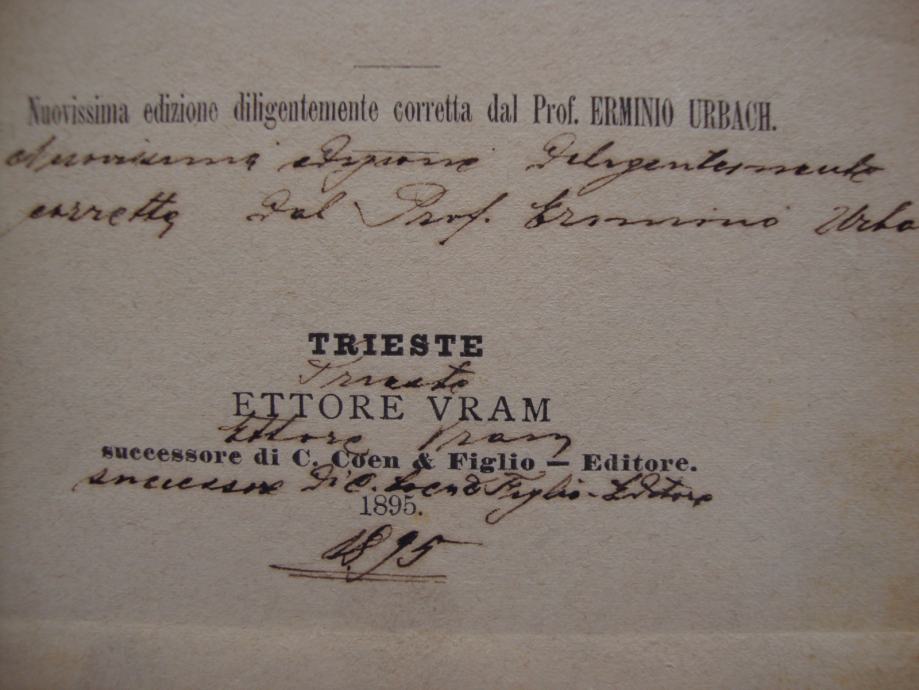 Nuovissima edizione diligentemente corretta dal Prof. ERMINIO URBACH.
Nuovissima edizione diligentemente
corretta dal Prof. Erminio Urba
TRIESTE
Trieste
ETTORE VRAM
Ettore Vram
successore di C. Coen & Figlio — Editore.
successore di C. Coen & Figlio - Editore
1895.
1895